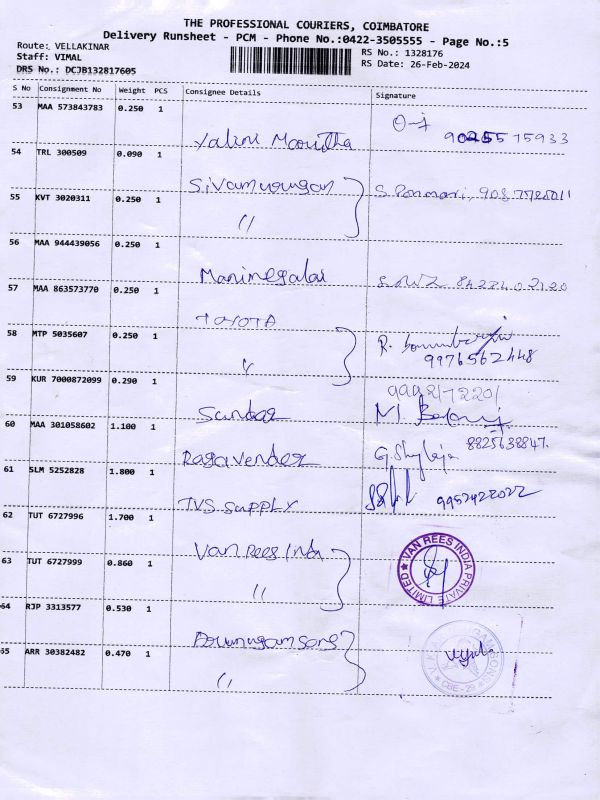 THE PROFESSIONAL COURIERS, COIMBATORE
Delivery Runsheet - PCM - Phone No.:0422-3505555 - Page No.:5
Route: VELLAKINAR
RS No.: 1328176
Staff: VIMAL
RS Date: 26-Feb-2024
DRS No.: DCJB132817605
S No Consignment No Weight PCS Consignee Details Signature
53 MAA 573843783 0.250 1
Yalini Mounitha
54 TRL 300509 0.090 1
Sivamurungan S. Ponmari,
55 KVT 3020311 0.250 1
"
56 MAA 944439056 0.250 1
Manimegalai
57 MAA 863573770 0.250 1
TOYOTA
58 MTP 5035607 0.250 1
" R.
9976562448
59 KUR 7000872099 0.290 1
Sundar
60 MAA 301058602 1.100 1
8825638847.
Ragavender G. Shylaja
61 SLM 5252828 1.800 1
TVS SUPPLY 9952422022
62 TUT 6727996 1.700 1
Van Rees India
VAN REES INDIA PRIVATE LIMITED
63 TUT 6727999 0.860 1
"
64 RJP 3313577 0.530 1
Arumugam Sons
65 ARR 30382482 0.470 1
"
CBE-29